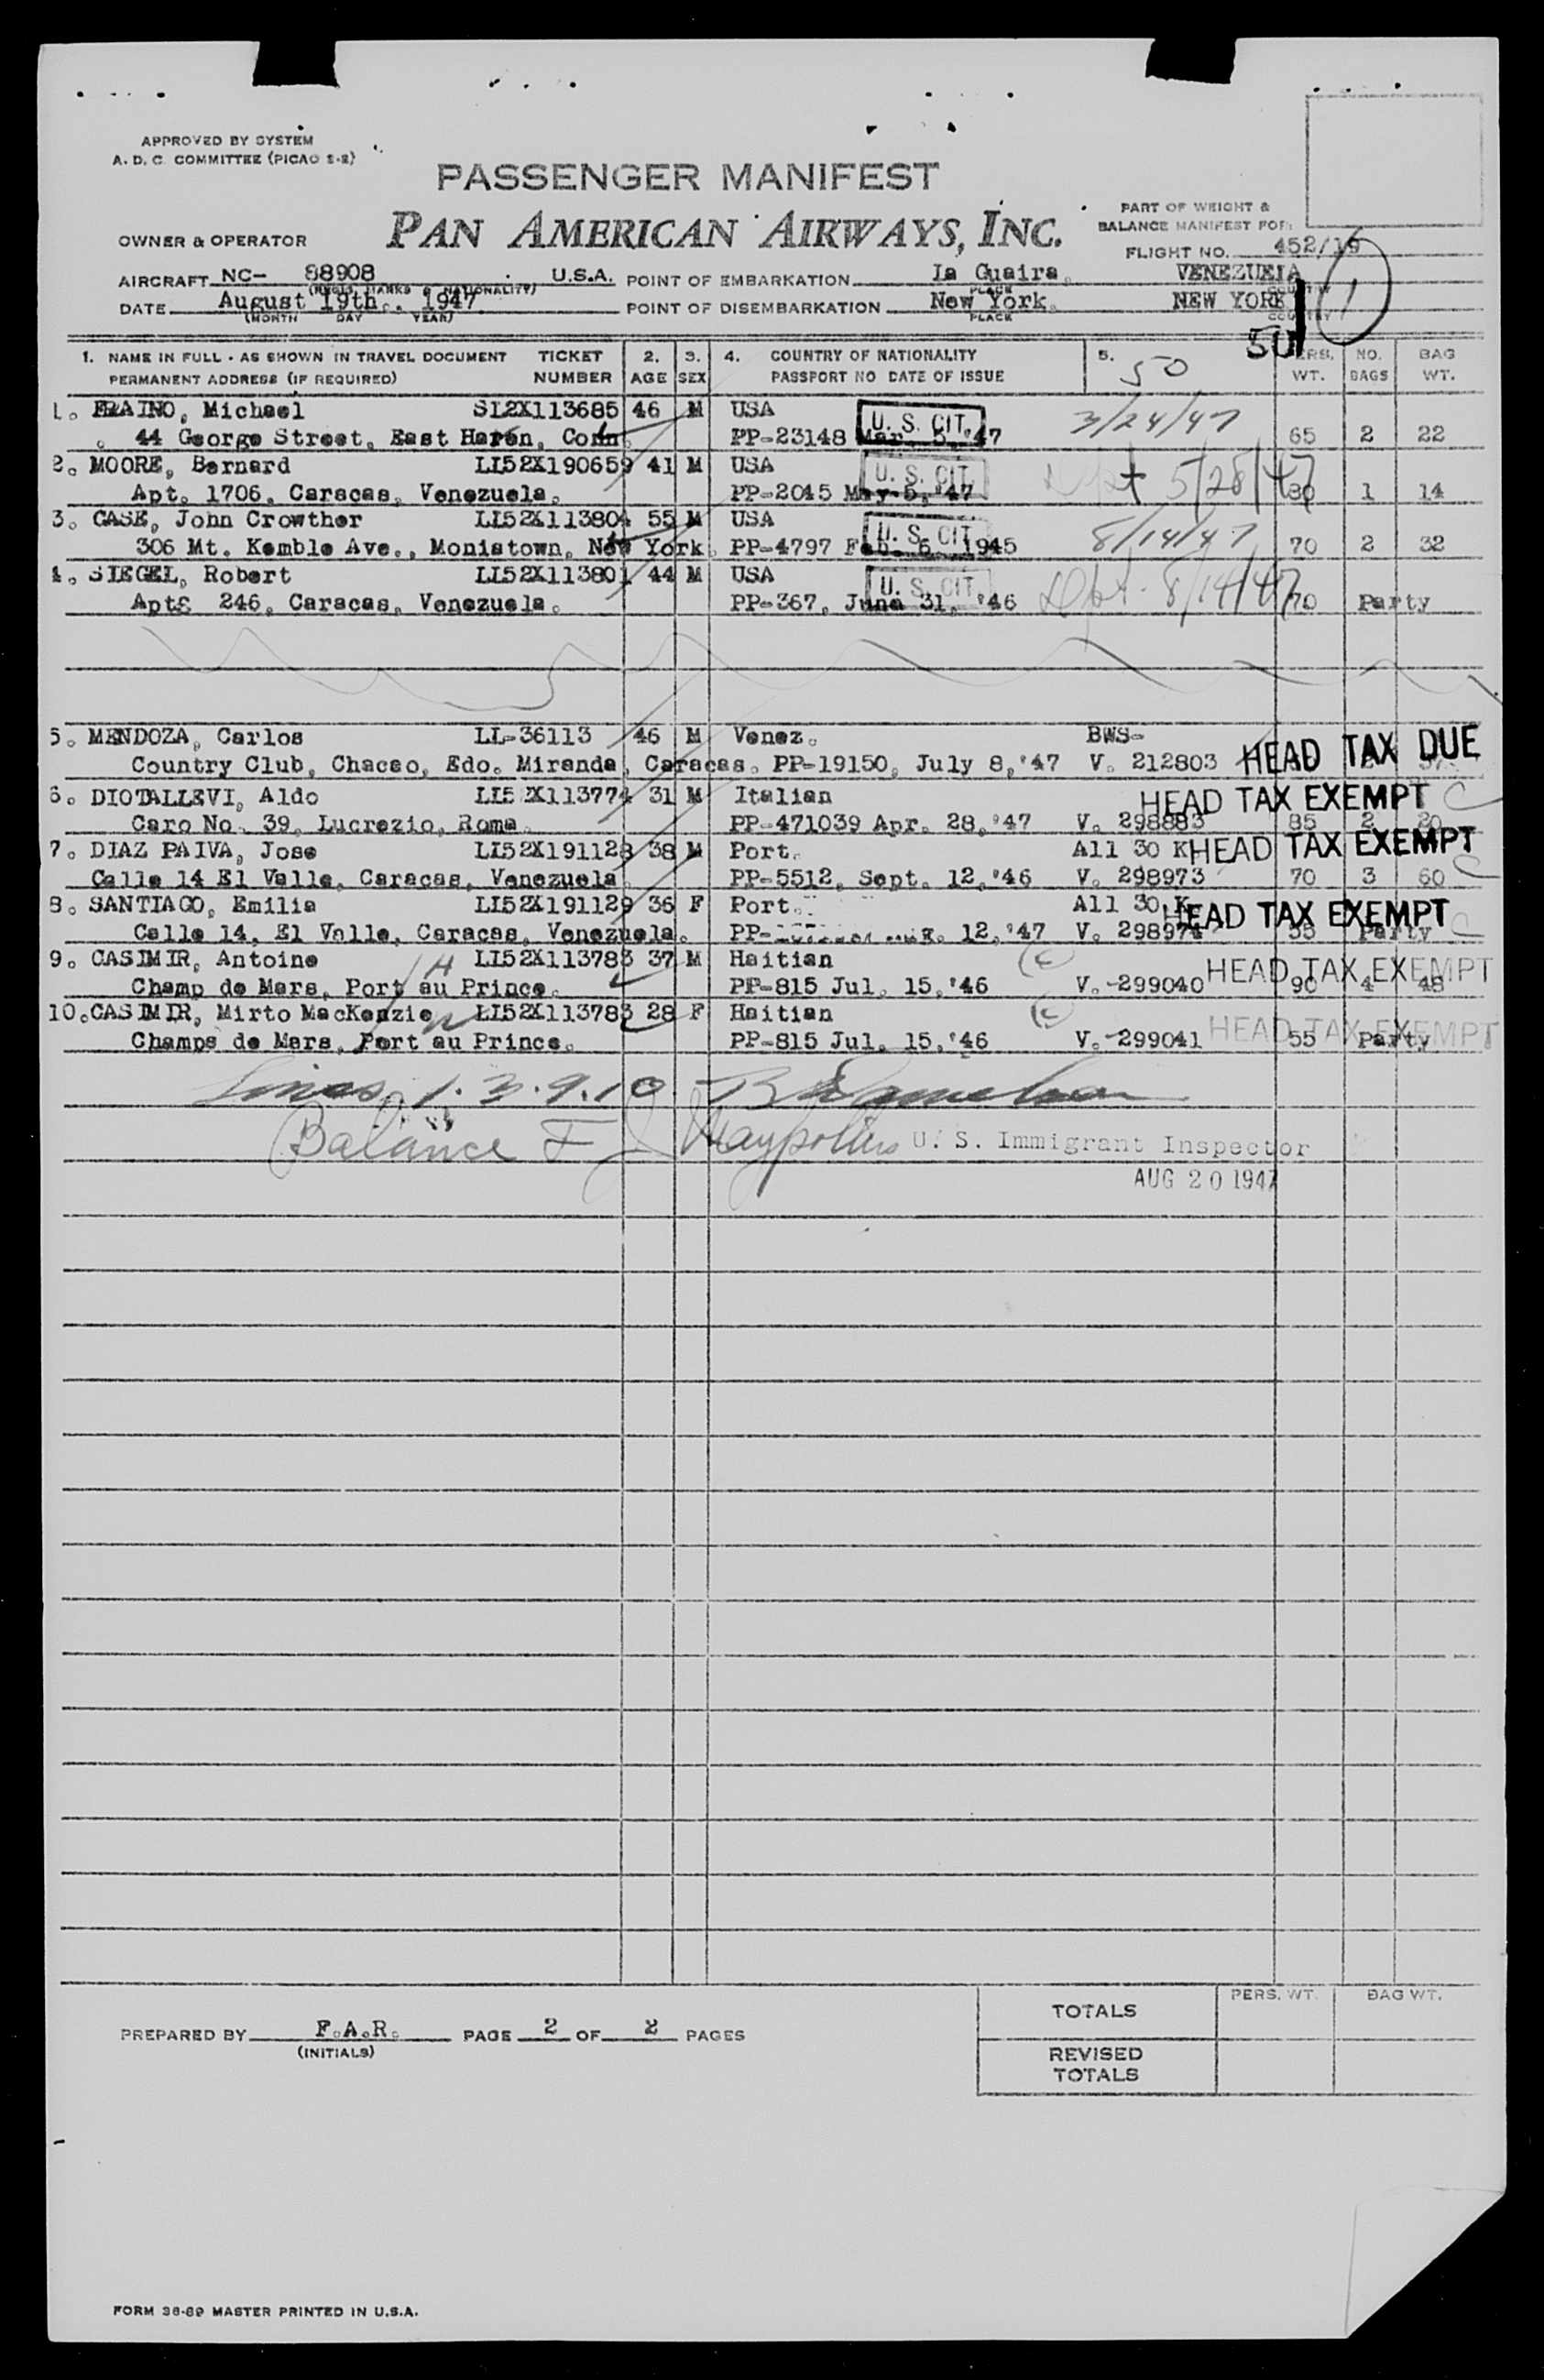 APPROVED BY SYSTEM
A. D. C. COMMITTEE (PICAO 2-2)
PASSENGER MANIFEST
PAN AMERICAN AIRWAYS, INC.
PART OF WEIGHT &
BALANCE MANIFEST FOR:
OWNER & OPERATOR
FLIGHT NO. 452/19
AIRCRAFT NC- 88908 U.S.A. POINT OF EMBARKATION La Guaira. VENEZUELA
(REGIS. MARKS & NATIONALITY) PLACE COUNTRY
DATE August 19th., 1947 POINT OF DISEMBARKATION New York. NEW YORK
(MONTH DAY YEAR) PLACE COUNTRY
1
50
1. NAME IN FULL - AS SHOWN IN TRAVEL DOCUMENT TICKET 2. 3. 4. COUNTRY OF NATIONALITY 5. 50 PERS. NO. BAG
PERMANENT ADDRESS (IF REQUIRED) NUMBER AGE SEX PASSPORT NO DATE OF ISSUE WT. BAGS WT.
1. FRAINO, Michael SL2X113685 46 M USA U. S. CIT. 3/24/47
44 George Street, East Haven, Conn. PP-23148 Mar. 5, '47 65 2 22
2. MOORE, Bernard LL52X190659 41 M USA U. S. CIT. 5/28/47
Apt. 1706, Caracas, Venezuela. PP-2045 May 5, '47 80 1 14
3. CASE, John Crowther LL52X113804 55 M USA U. S. CIT. 8/14/47
306 Mt. Kemble Ave., Monistown, New York. PP-4797 Feb. 6, 1945 70 2 32
4. SIEGEL, Robert LL52X113801 44 M USA U. S. CIT. Dpt. 8/14/47
Apt& 246, Caracas, Venezuela. PP-367, June 31, '46 70 Party
5. MENDOZA, Carlos LL-36113 46 M Venez. BWS-
Country Club, Chacao, Edo. Miranda, Caracas. PP-19150, July 8, '47 V. 212803 HEAD TAX DUE
6. DIOTALLEVI, Aldo LL5 2X113774 31 M Italian HEAD TAX EXEMPT
Caro No. 39, Lucrezio, Roma. PP-471039 Apr. 28, '47 V. 298883 85 2 20
7. DIAZ PAIVA, Jose LL52X191128 38 M Port. All 30 K HEAD TAX EXEMPT
Calle 14 El Valle, Caracas, Venezuela. PP-5512, Sept. 12, '46 V. 298973 70 3 60
8. SANTIAGO, Emilia LL52X191129 36 F Port. All 30 K HEAD TAX EXEMPT
Calle 14, El Valle, Caracas, Venezuela. PP- 12, '47 V. 298974 55 Party
9. CASIMIR, Antoine LL52X113783 37 M Haitian HEAD TAX EXEMPT
Champ de Mars, Port au Prince. PP-815 Jul. 15, '46 V.-299040 90 4 48
10. CASIMIR, Mirto MacKenzie LL52X113783 28 F Haitian HEAD TAX EXEMPT
Champs de Mars, Port au Prince. PP-815 Jul. 15, '46 V.-299041 55 Party
Lines 1. 3. 9. 10
Balance
U. S. Immigrant Inspector
AUG 20 1947
PREPARED BY F.A.R. PAGE 2 OF 2 PAGES
(INITIALS)
PERS. WT. BAG WT.
TOTALS
REVISED
TOTALS
FORM 38-89 MASTER PRINTED IN U.S.A.